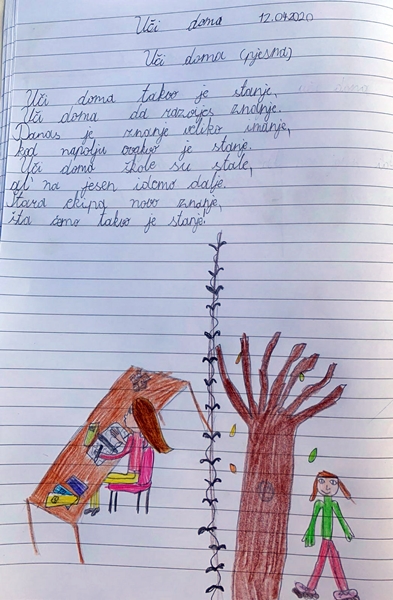 Uči doma 12.04.2020
Uči doma (pjesma)
Uči doma takvo je stanje,
Uči doma da razviješ znanje.
Danas je znanje veliko imanje,
kad napolju ovakvo je stanje.
Uči doma škole su stale,
ali na jesen idemo dalje.
Stara ekipa novo znanje,
šta ćemo takvo je stanje.